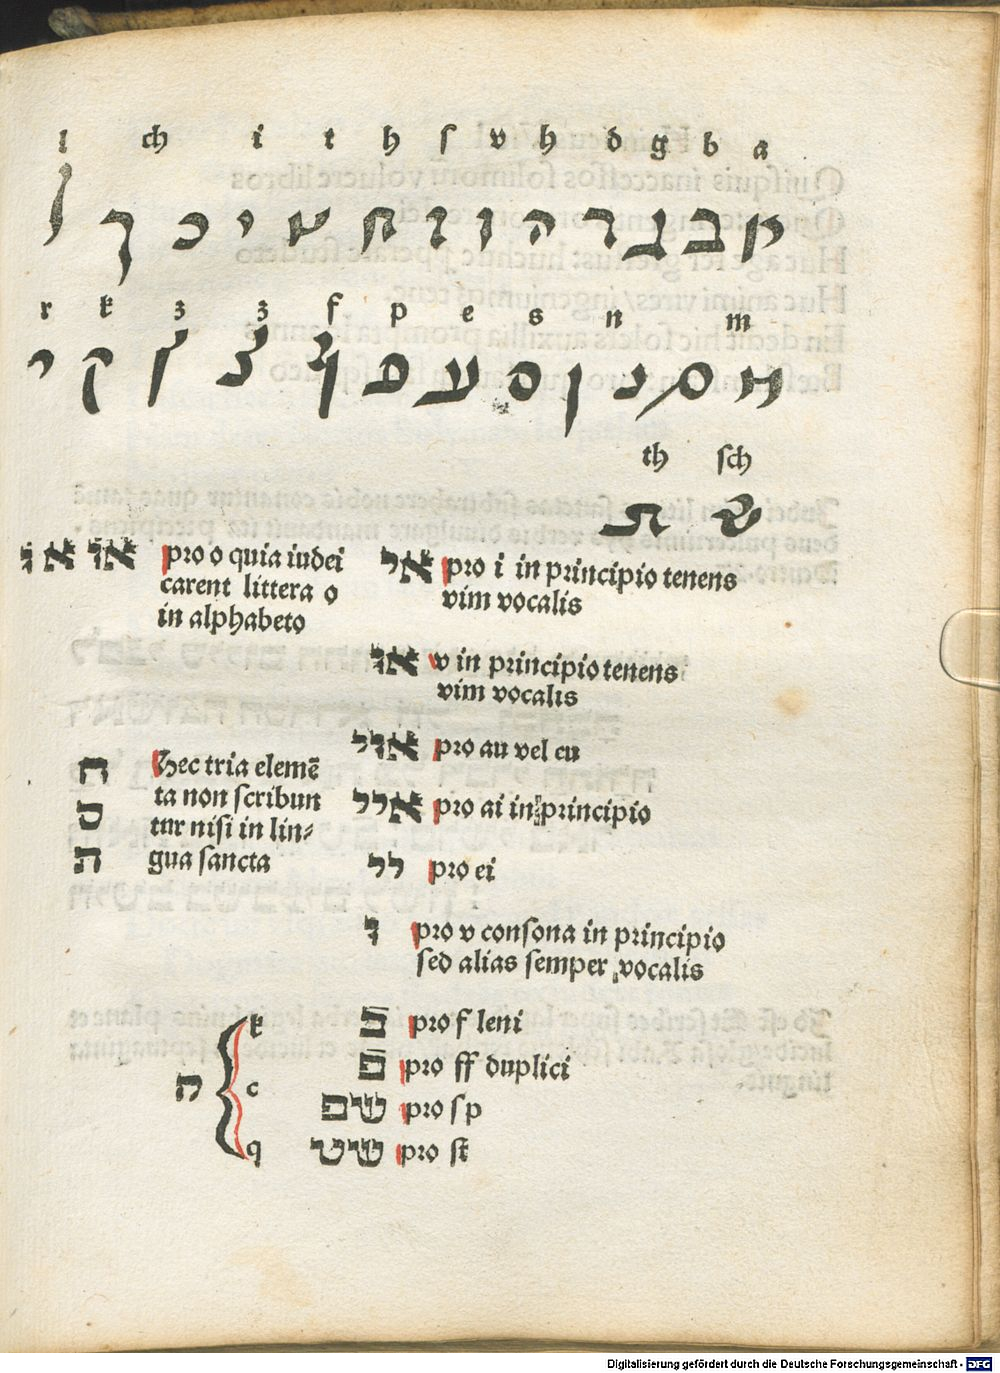 l ch i t h ſ v h d g b a
א ב ג ד ה ו ז ח ט י כ ך ל
r k ʒ ʒ f p e s n m
מ ם נ ן ס ע פ ף צ ץ ק ר
th ſch
ש ת
או א ו pro o quia iudei
carent littera o
in alphabeto
אי pro i in principio tenens
vim vocalis
או v in principio tenens
vim vocalis
אוי pro au vel eu
איי pro ai in principio
יי pro ei
ו pro v conſona in principio
sed alias semper vocalis
ח
ס
ת
Hec tria elemē
ta non ſcribun
tur niſi in lin⸗
gua ſancta
ק
k
c
q
פֿ pro f leni
פ pro ff duplici
שפ pro ſp
שט pro ſt
Digitalisierung gefördert durch die Deutsche Forschungsgemeinschaft - DFG